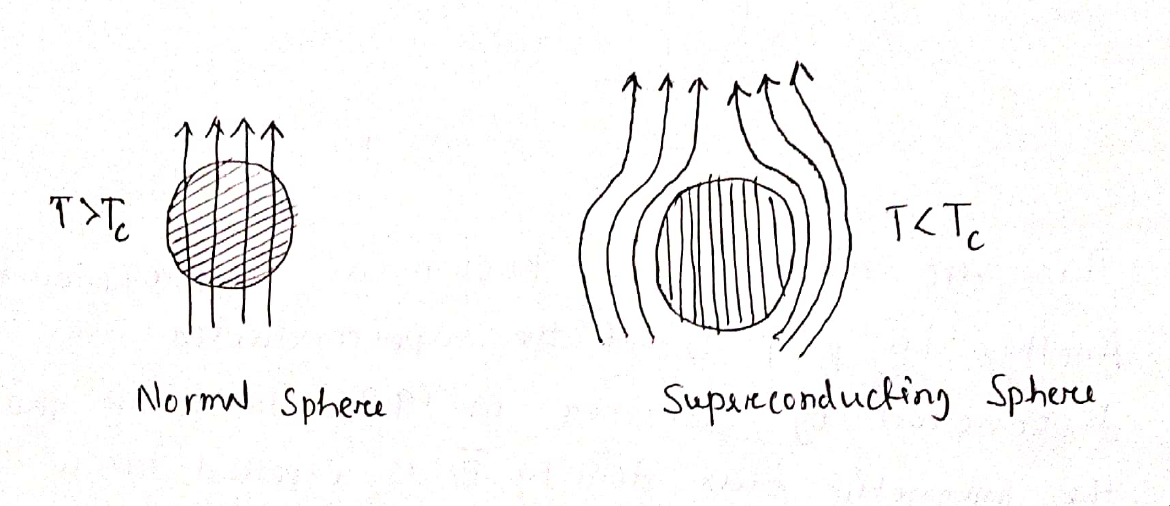 T>Tc
T<Tc
Normal Sphere
Superconducting Sphere